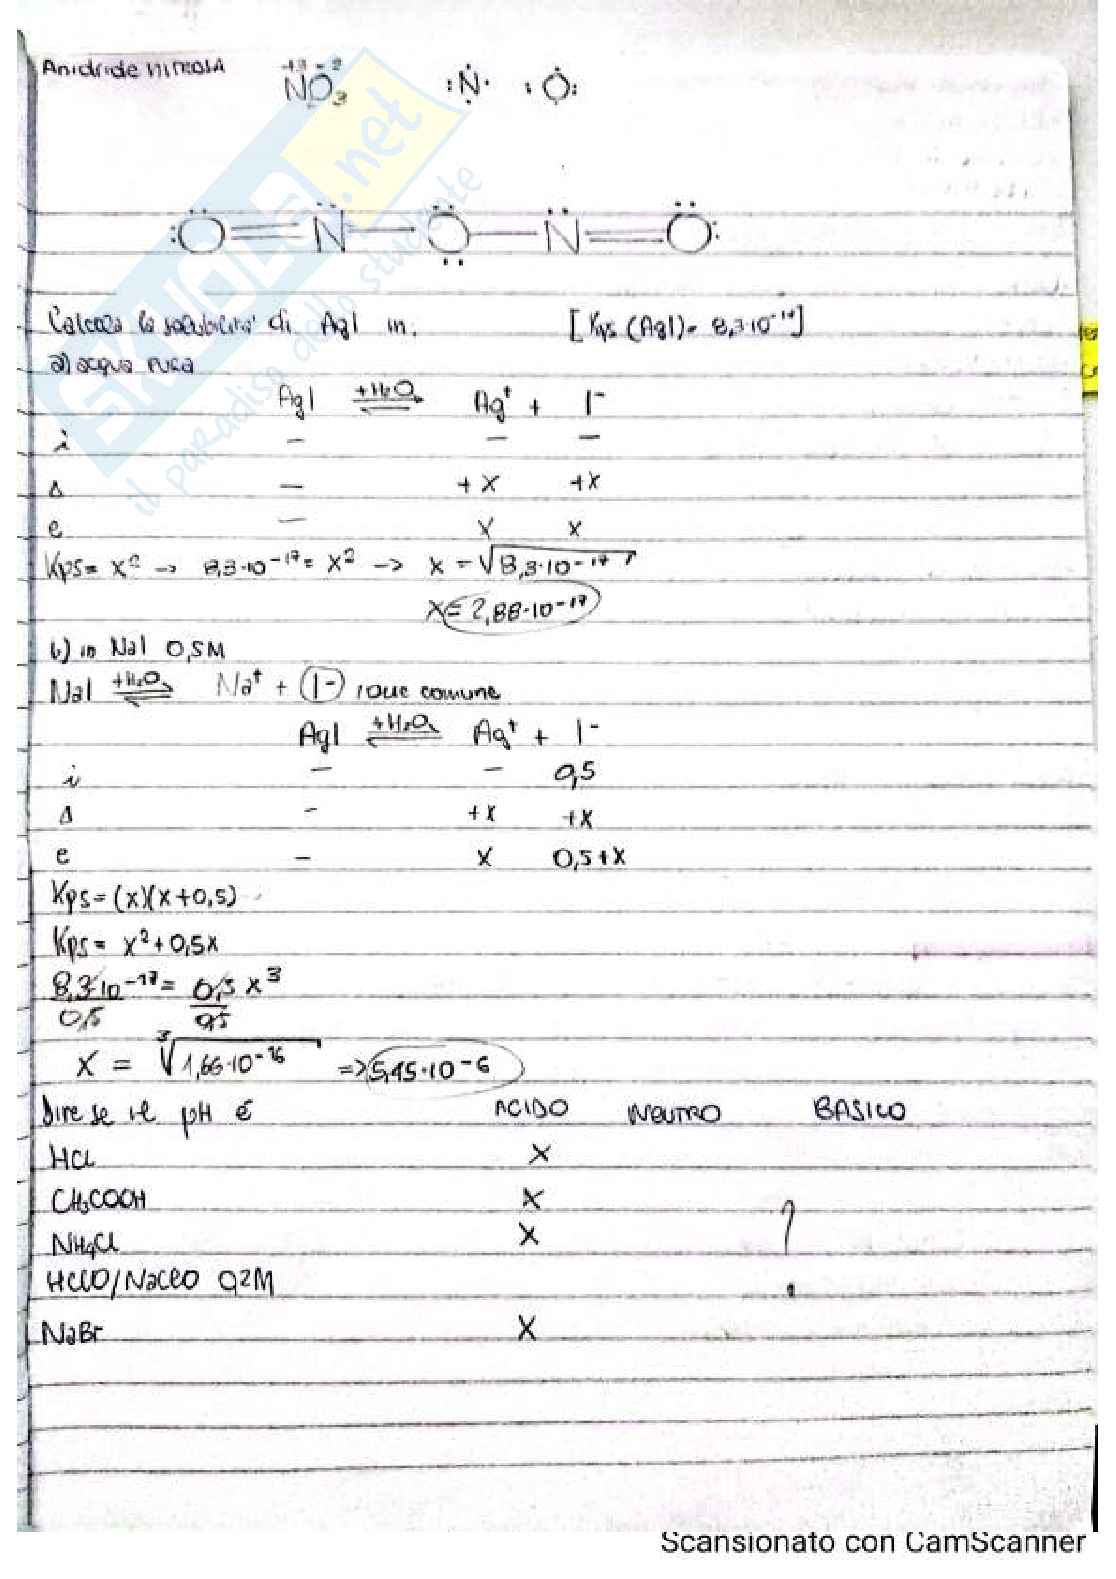 Anidride nitrosa +3 -2 NO3 :N· :O:
:O=N—O—N=O:
Calcola la solubilità di AgI in: [Kps (AgI)= 8,3·10⁻¹⁷]
a) acqua pura
AgI +H2O ⇌ Ag⁺ + I⁻
i — — —
Δ — +x +x
e — x x
Kps= x² → 8,3·10⁻¹⁷= x² → x = √8,3·10⁻¹⁷
x= 2,88·10⁻¹⁷
b) in NaI 0,5M
NaI +H2O ⇌ Na⁺ + I⁻ ione comune
AgI +H2O ⇌ Ag⁺ + I⁻
i — — 0,5
Δ - +x +x
e - x 0,5+x
Kps=(x)(x+0,5)
Kps= x²+0,5x
8,3·10⁻¹⁷/0,5 = 0,5x³/0,5
x = ³√1,66·10⁻¹⁶ => 5,45·10⁻⁶
Dire se il pH è ACIDO NEUTRO BASICO
HCl X
CH3COOH X
NH4Cl X ?
HClO/NaClO 0,2M
NaBr X
SKUOLA.net
il paradiso dello studente
Scansionato con CamScanner